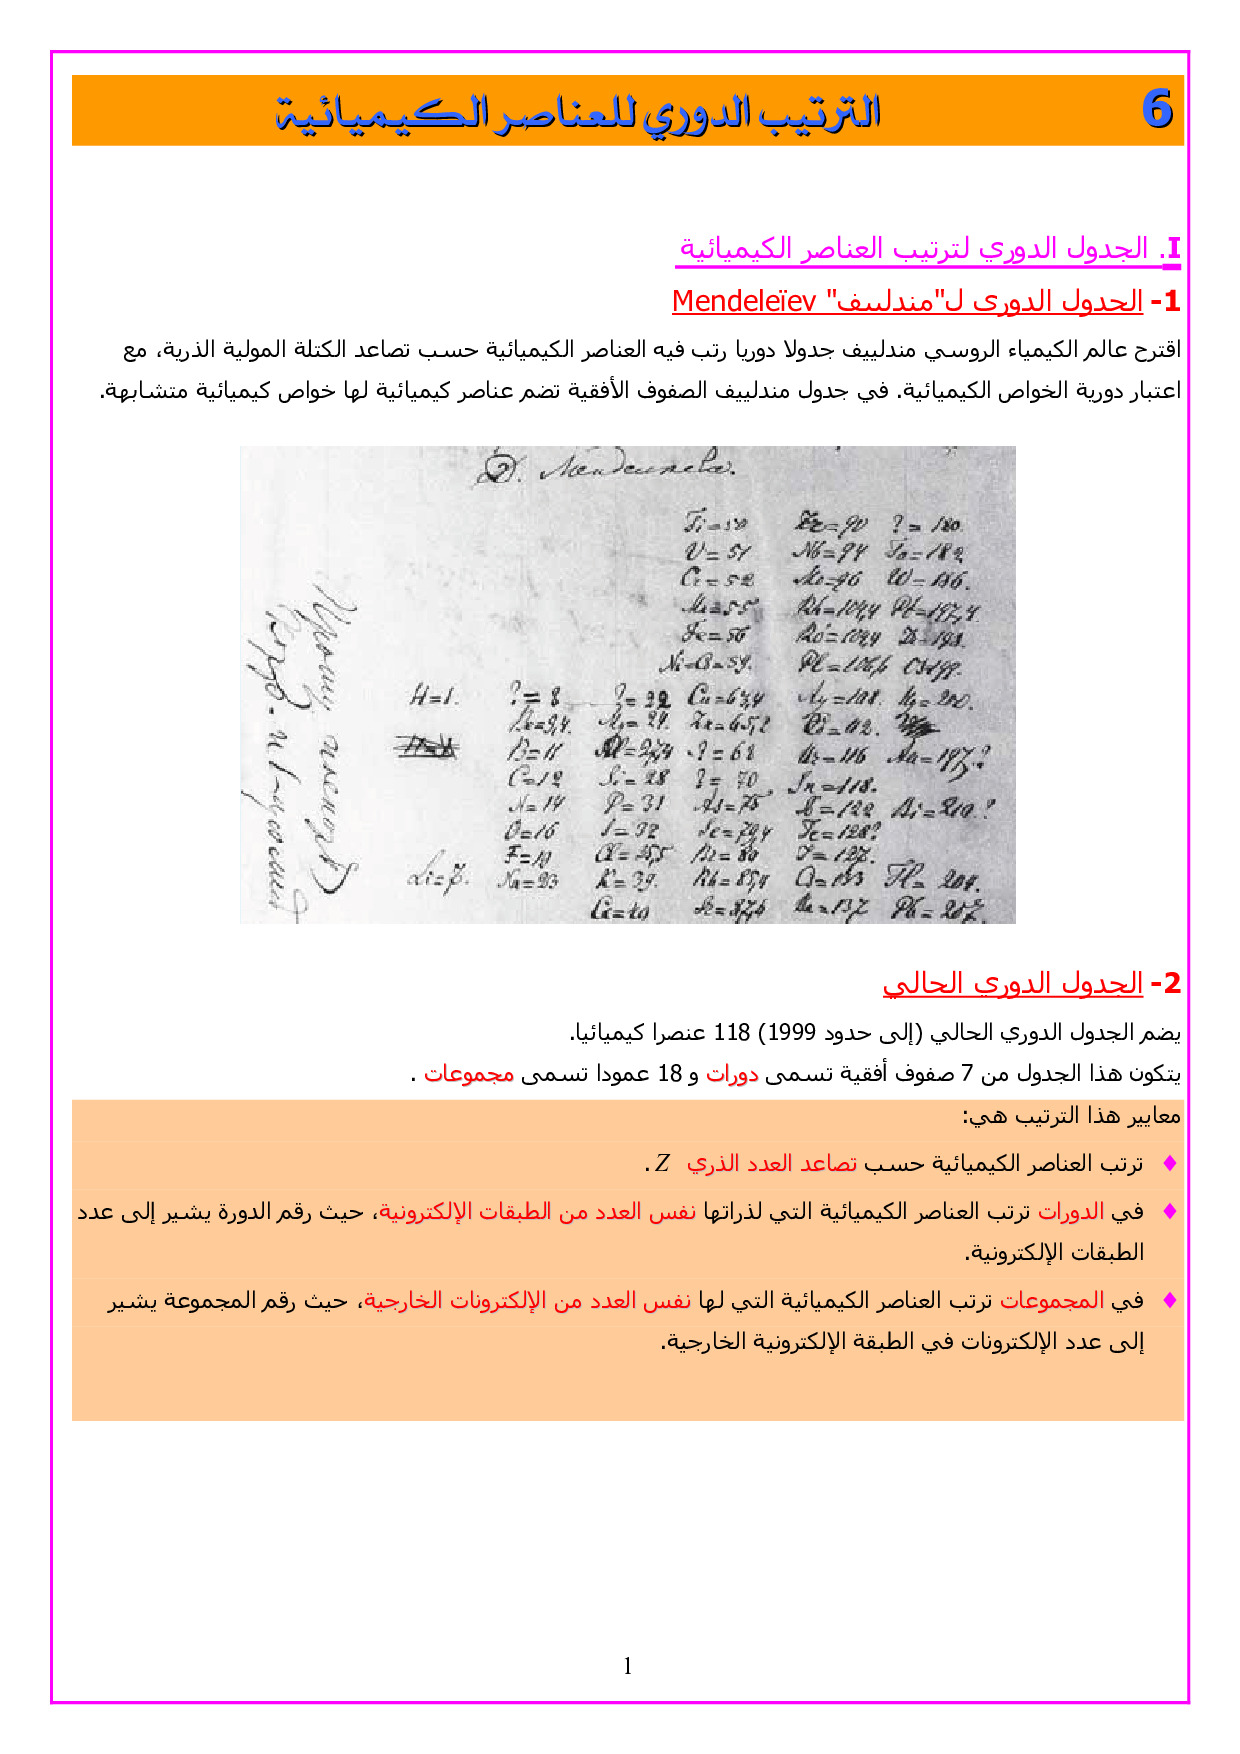 6 الترتيب الدوري للعناصر الكيميائية
I. الجدول الدوري لترتيب العناصر الكيميائية
1- الجدول الدوري ل"مندلييف" Mendeleïev
اقترح عالم الكيمياء الروسي مندلييف جدولا دوريا رتب فيه العناصر الكيميائية حسب تصاعد الكتلة المولية الذرية، مع
اعتبار دورية الخواص الكيميائية. في جدول مندلييف الصفوف الأفقية تضم عناصر كيميائية لها خواص كيميائية متشابهة.
Ti=50 Zr=90 ?=180
V=51 Nb=94 Ta=182
Cr=52 Mo=96 W=186.
Mn=55 Rh=104,4 Pt=197,4
Fe=56 Ru=104,4 Ir=198.
Ni=Co=59. Pl=106,6 Os=199.
H=1. ?=8 ?=22 Cu=63,4 Ag=108. Hg=200.
Be=9,4. Mg=24. Zn=65,2
B=11 Al=27,4 ?=68 Ur=116 Au=197?
C=12 Si=28 ?=70 Sn=118.
N=14 P=31 As=75 Sb=122 Bi=210?
O=16 S=32 Se=79,4 Te=128?
F=19 Cl=35,5 Br=80 I=127.
Li=7. Na=23 K=39. Rb=85,4 Cs=133 Tl=204.
Ca=40 Sr=87,6 Ba=137 Pb=207.
2- الجدول الدوري الحالي
يضم الجدول الدوري الحالي (إلى حدود 1999) 118 عنصرا كيميائيا.
يتكون هذا الجدول من 7 صفوف أفقية تسمى دورات و 18 عمودا تسمى مجموعات .
معايير هذا الترتيب هي:
♦ ترتب العناصر الكيميائية حسب تصاعد العدد الذري Z .
♦ في الدورات ترتب العناصر الكيميائية التي لذراتها نفس العدد من الطبقات الإلكترونية، حيث رقم الدورة يشير إلى عدد
الطبقات الإلكترونية.
♦ في المجموعات ترتب العناصر الكيميائية التي لها نفس العدد من الإلكترونات الخارجية، حيث رقم المجموعة يشير
إلى عدد الإلكترونات في الطبقة الإلكترونية الخارجية.
1